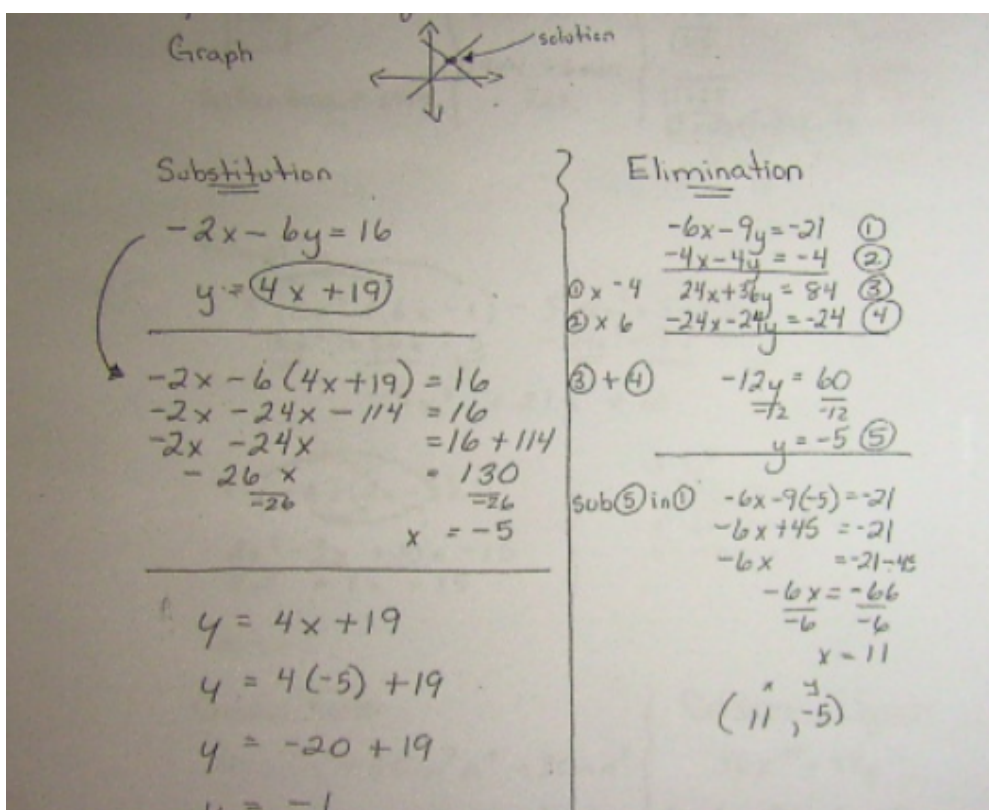 Graph
solution
Substitution
-2x - 6y = 16
y = 4x + 19
-2x - 6(4x+19) = 16
-2x - 24x - 114 = 16
-2x - 24x = 16 + 114
-26x = 130
-26 -26
x = -5
y = 4x + 19
y = 4(-5) + 19
y = -20 + 19
y = -1
Elimination
-6x - 9y = -21 ①
-4x - 4y = -4 ②
① x -4 24x + 36y = 84 ③
② x 6 -24x - 24y = -24 ④
③ + ④ -12y = 60
-12 -12
y = -5 ⑤
sub ⑤ in ① -6x - 9(-5) = -21
-6x + 45 = -21
-6x = -21 - 45
-6x = -66
-6 -6
x = 11
x y
(11, -5)